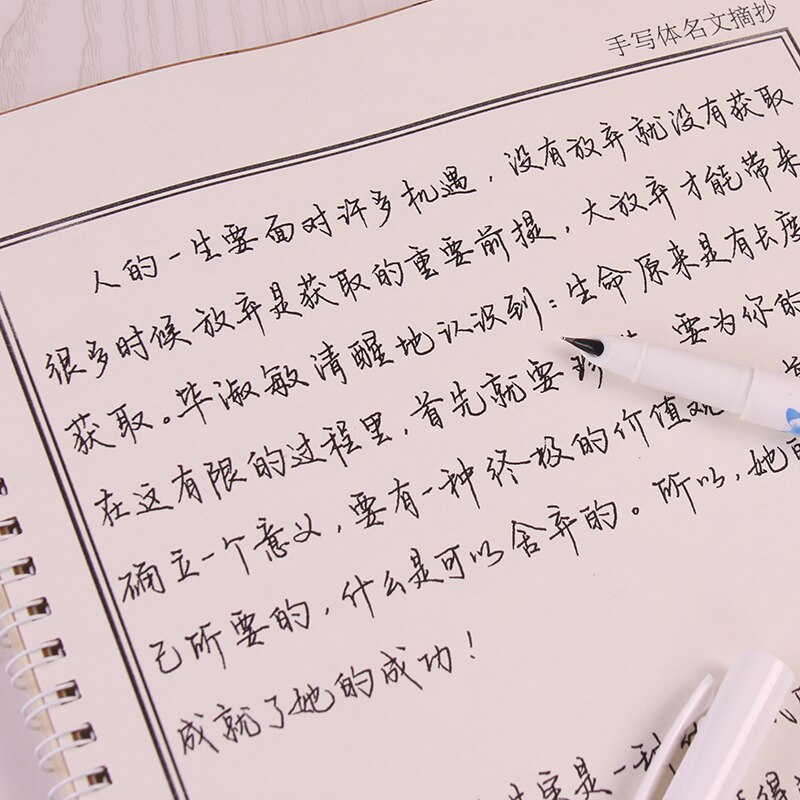 手写体名文摘抄
人的一生要面对许多机遇，没有放弃就没有获取
很多时候放弃是获取的重要前提，大放弃才能带来
获取。毕淑敏清醒地认识到：生命原来是有长度
在这有限的过程里，首先就要 要为你的
确立一个意义，要有一种终极的价值观
己所要的，什么是可以舍弃的。所以，她的
成就了她的成功！
实是一种
得